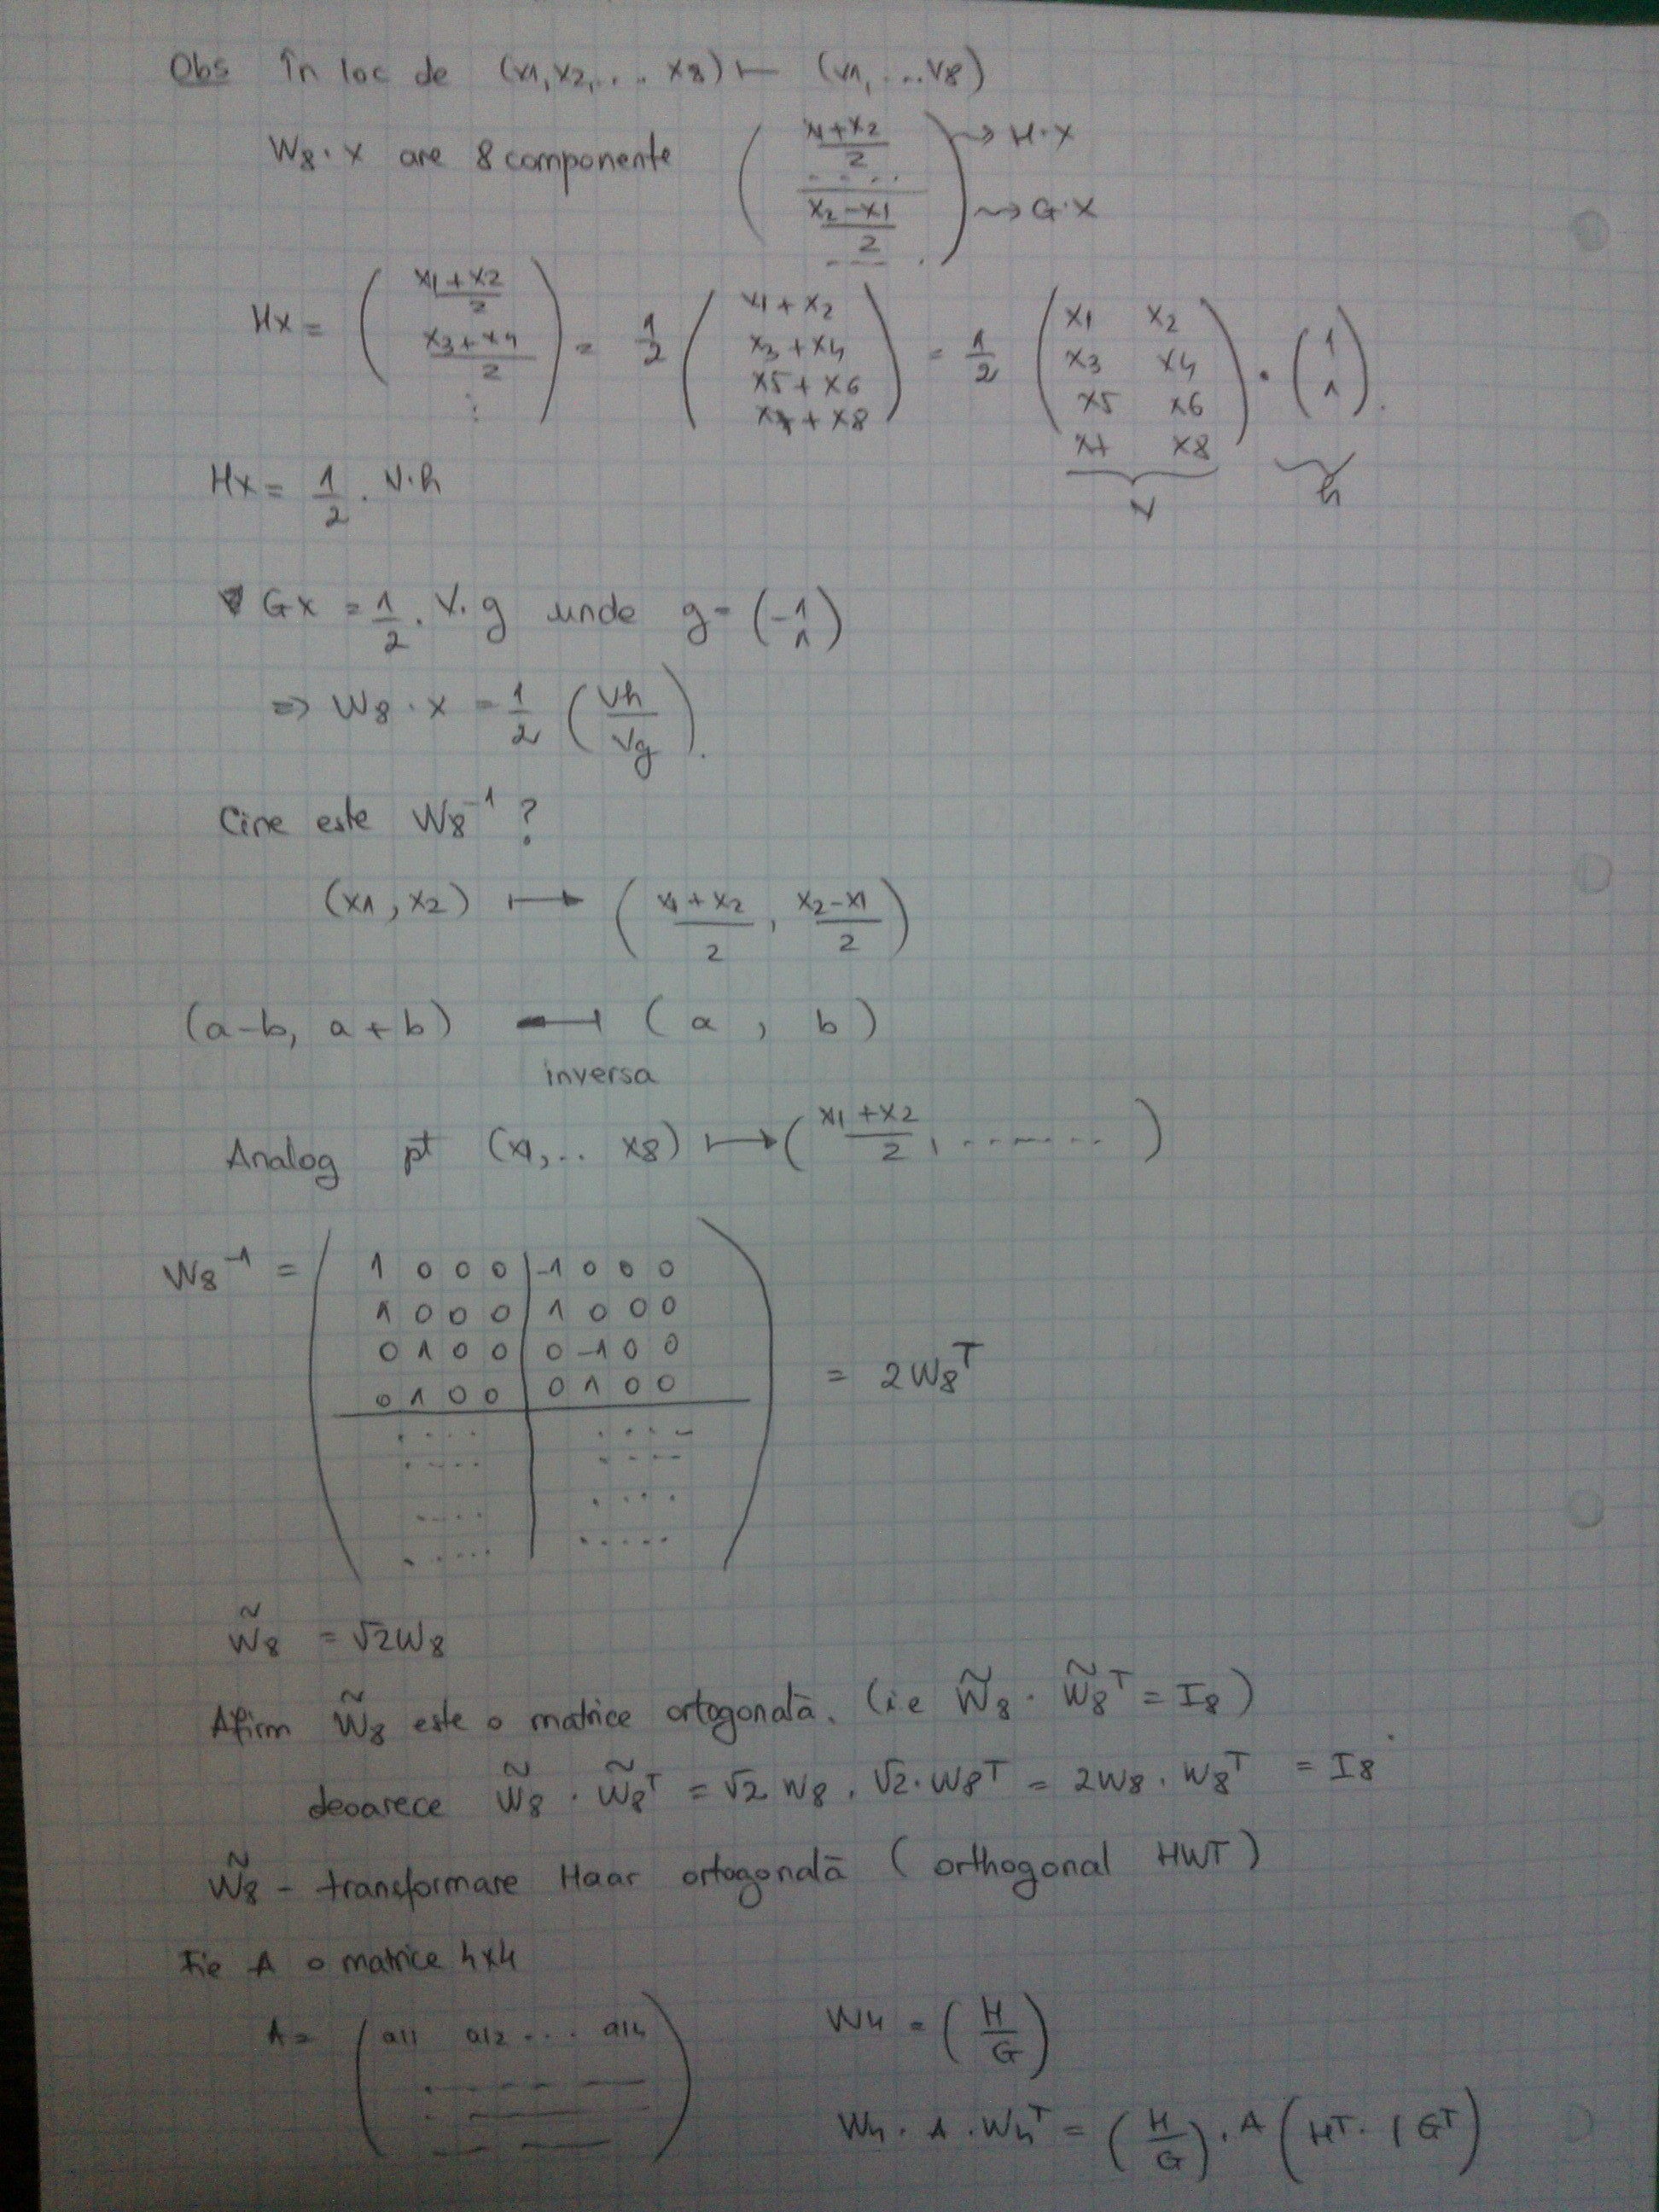 Obs În loc de (x1, x2, ... x8) ⟼ (v1, ... v8)
W8 · x are 8 componente ( (x1+x2)/2 .... | (x2-x1)/2 .... ) ⇝ H·x ⇝ G·x
Hx = ( (x1+x2)/2 (x3+x4)/2 ⋮ ) = 1/2 ( x1+x2 x3+x4 x5+x6 x7+x8 ) = 1/2 ( x1 x2 x3 x4 x5 x6 x7 x8 ) · ( 1 1 ).
V h
Hx = 1/2 · V·h
Gx = 1/2 · V·g unde g = ( -1 1 )
=> W8 · x = 1/2 ( Vh / Vg ).
Cine este W8^-1 ?
(x1, x2) ⟼ ( (x1+x2)/2 , (x2-x1)/2 )
(a-b, a+b) ⟻ ( a , b )
inversa
Analog pt (x1, .. x8) ⟼ ( (x1+x2)/2 , ....... )
W8^-1 = ( 1 0 0 0 | -1 0 0 0
1 0 0 0 | 1 0 0 0
0 1 0 0 | 0 -1 0 0
0 1 0 0 | 0 1 0 0
.... | .... ) = 2W8^T
W̃8 = √2W8
Afirm W̃8 este o matrice ortogonală. (i.e W̃8 · W̃8^T = I8)
deoarece W̃8 · W̃8^T = √2 W8 · √2 · W8^T = 2W8 · W8^T = I8
W̃8 - transformare Haar ortogonală ( orthogonal HWT )
Fie A o matrice 4x4
A = ( a11 a12 ... a14 ) W4 = ( H / G )
W4 · A · W4^T = ( H / G ) · A ( H^T · | G^T )